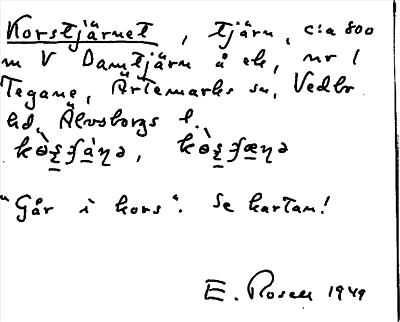 Korstjärnet, tjärn, c:a 800
m V Damtjärn å ek, nr 1
Tegane, Ärtemarks sn, Vedbo
hd, Älvsborgs l.
"Går i kors". Se kartan!
E. Rosell 1949